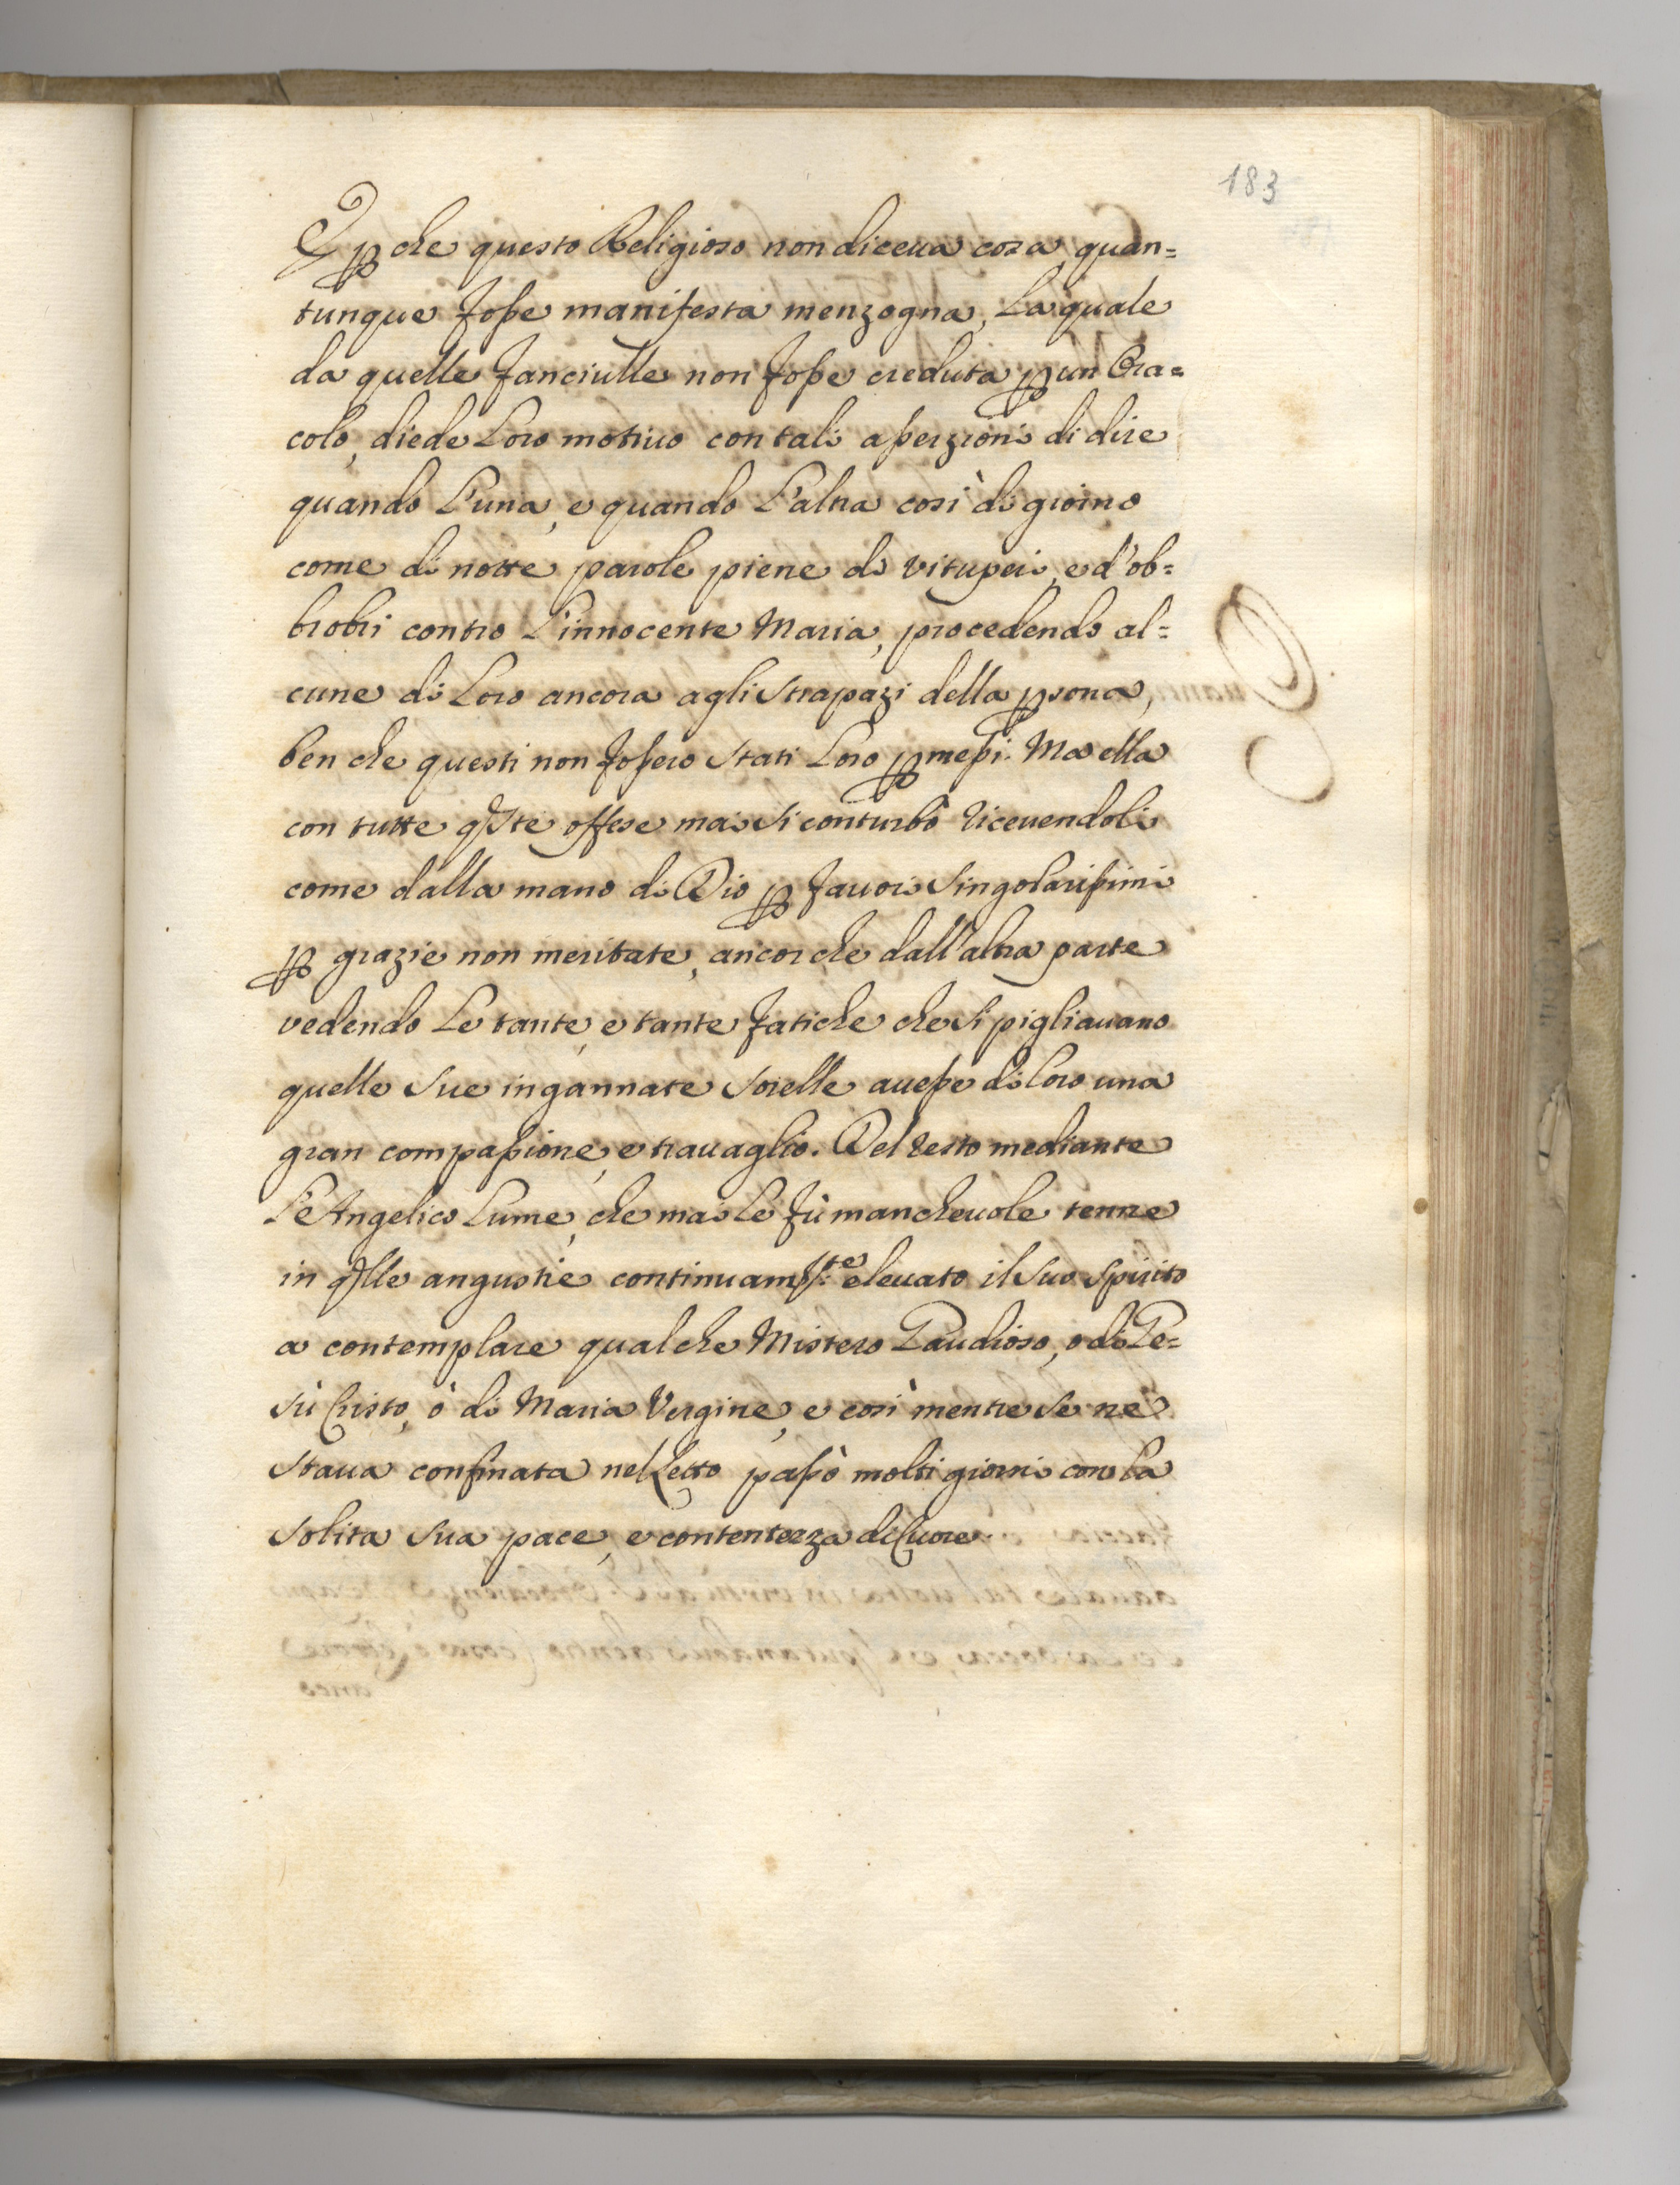 183
E ꝑche questo Religioso non diceua cosa, quan=
tunque fosse manifesta menzogna, La quale
da quelle fanciulle non fosse creduta ꝑ un Ora=
colo, diede Loro motiuo con tali asserzioni di dire
quando L'una, e quando L'altra così di giorno
come di notte parole piene di vituperi, e d'ob=
brobri contro L'innocente Maria, procedendo al=
cune di Loro ancora agli strapazi della ꝑsona,
ben che questi non fossero stati Loro ꝑmessi. Ma ella
con tutte q̃ste offese mai si conturbò riceuendoli
come dalla mano di Dio ꝑ fauori singolarissimi
ꝑ grazie non meritate, ancor che dall'altra parte
vedendo Le tante, e tante fatiche che si pigliauano
quelle sue ingannate sorelle auesse di loro una
gran compassione, e trauaglio. Del resto mediante
L'Angelico Lume, che mai Le fù mancheuole tenne
in q̃lle angustie continuam:te eleuato il suo spirito
a contemplare qualche Mistero Gaudioso, o di Ge=
sù Cristo, ò di Maria Vergine, e così mentre se ne
staua confinata nel Letto passò molti giorni con la
solita sua pace, e contentezza di Cuore.